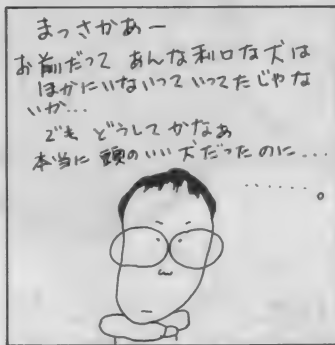 まっさかあー
お前だって あんな利口な犬は
ほかにいないって いってたじゃな
いか...
でも どうしてかなあ
本当に 頭のいい犬だったのに...
......。